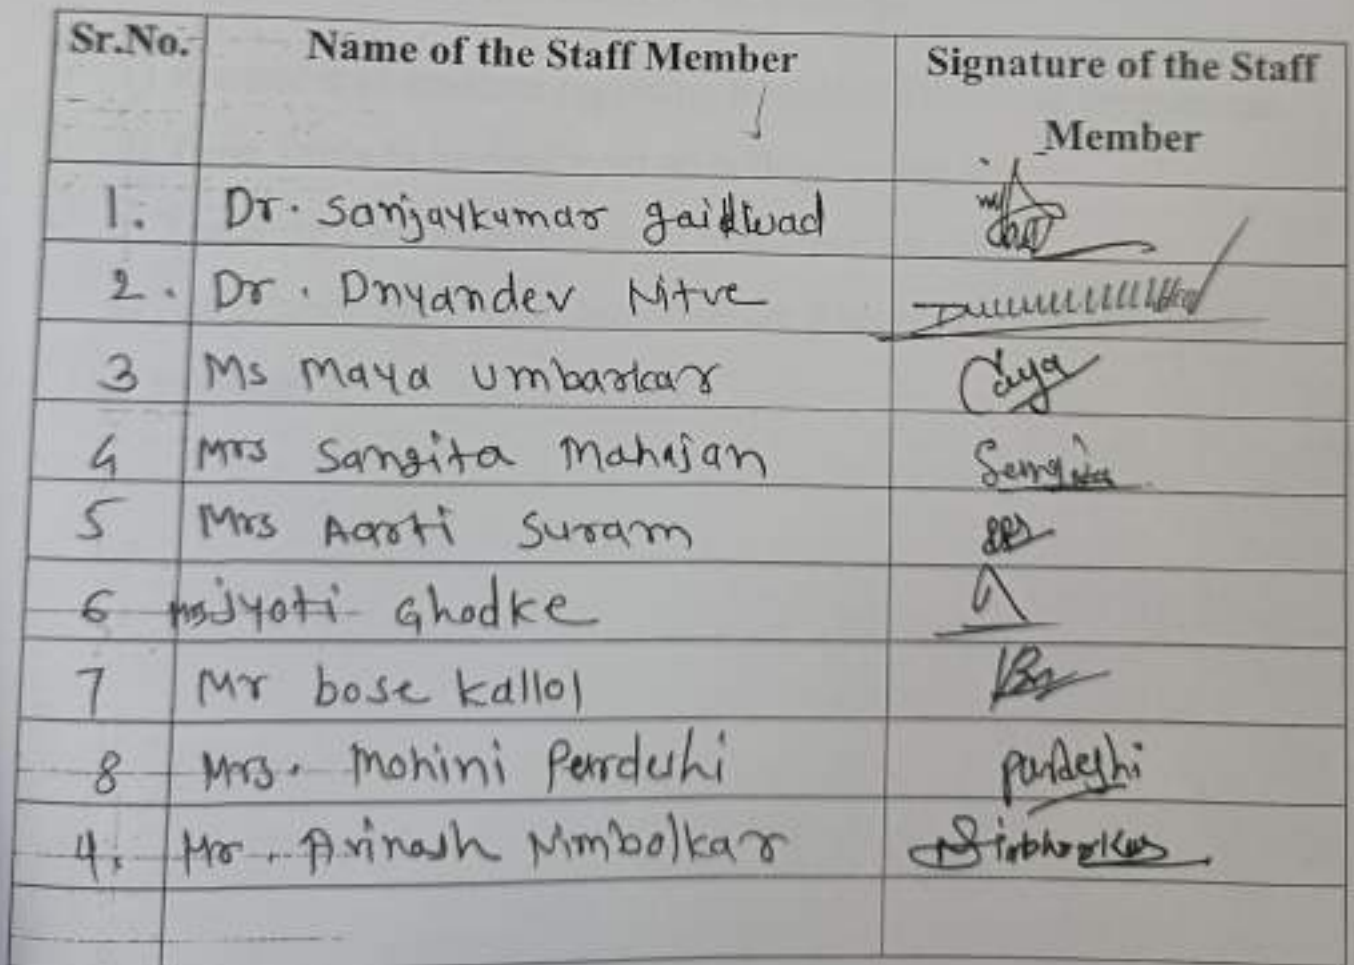 Sr.No. Name of the Staff Member Signature of the Staff
Member
1. Dr. Sanjaykumar gaikwad
2. Dr. Dnyandev Nitve
3 Ms Maya Umbarkar
4 Mrs Sangita Mahajan Sangita
5 Mrs Aarti Suram
6 Ms Jyoti Ghodke
7 Mr bose kallol
8 Mrs. Mohini Pardeshi pardeshi
4. Mr. Avinash Nimbalkar